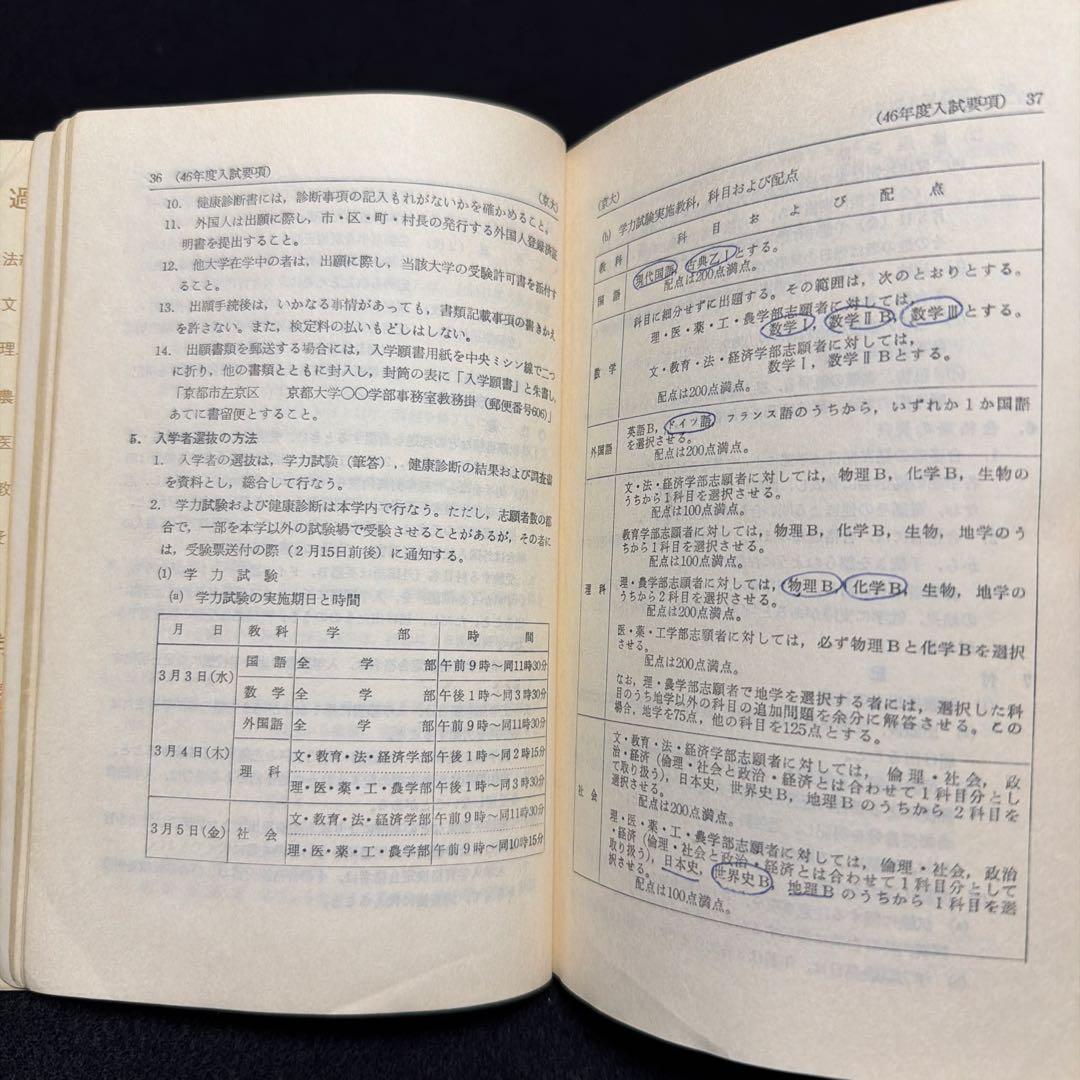 過
法
文
理
農
医
教
36 (46年度入試要項)
(京大)
10. 健康診断書には,診断事項の記入もれがないかを確かめること。
11. 外国人は出願に際し,市・区・町・村長の発行する外国人登録済証
明書を提出すること。
12. 他大学在学中の者は,出願に際し,当該大学の受験許可書を添付す
ること。
13. 出願手続後は,いかなる事情があっても,書類記載事項の書きかえ
を許さない。また,検定料の払いもどしはしない。
14. 出願書類を郵送する場合には,入学願書用紙を中央ミシン線で二つ
に折り,他の書類とともに封入し,封筒の表に「入学願書」と朱書し,
「京都市左京区 京都大学〇〇学部事務室教務掛(郵便番号606)」
あてに書留便とすること。
5. 入学者選抜の方法
1. 入学者の選抜は,学力試験(筆答),健康診断の結果および調査書
を資料とし,総合して行なう。
2. 学力試験および健康診断は本学内で行なう。ただし,志願者数の都
合で,一部を本学以外の試験場で受験させることがあるが,その者に
は,受験票送付の際(2月15日前後)に通知する。
(1) 学力試験
(a) 学力試験の実施期日と時間
月日 教科 学部 時間
3月3日(水) 国語 全学部 午前9時~同11時30分
数学 全学部 午後1時~同3時30分
3月4日(木) 外国語 全学部 午前9時~同11時30分
理科 文・教育・法・経済学部 午後1時~同2時15分
理・医・薬・工・農学部 午後1時~同3時30分
3月5日(金) 社会 文・教育・法・経済学部 午前9時~同11時30分
理・医・薬・工・農学部 午前9時~同10時15分
(46年度入試要項) 37
(京大)
(b) 学力試験実施教科,科目および配点
教科 科目および配点
国語 現代国語,古典乙Ⅰとする。
配点は200点満点。
数学 科目に細分せずに出題する。その範囲は,次のとおりとする。
理・医・薬・工・農学部志願者に対しては,
数学Ⅰ,数学ⅡB,数学Ⅲとする。
文・教育・法・経済学部志願者に対しては,
数学Ⅰ,数学ⅡBとする。
配点は200点満点。
外国語 英語B,ドイツ語,フランス語のうちから,いずれか1か国語
を選択させる。
配点は200点満点。
理科 文・法・経済学部志願者に対しては,物理B,化学B,生物の
うちから1科目を選択させる。
配点は100点満点。
教育学部志願者に対しては,物理B,化学B,生物,地学のう
ちから1科目を選択させる。
配点は100点満点。
理・農学部志願者に対しては,物理B,化学B,生物,地学の
うちから2科目を選択させる。
配点は200点満点。
医・薬・工学部志願者に対しては,必ず物理Bと化学Bを選択
させる。
配点は200点満点。
なお,理・農学部志願者で地学を選択する者には,選択した科
目のうち地学以外の科目の追加問題を余分に解答させる。この
場合,地学を75点,他の科目を125点とする。
社会 文・教育・法・経済学部志願者に対しては,倫理・社会,政
治・経済(倫理・社会と政治・経済とは合わせて1科目分とし
て取り扱う),日本史,世界史B,地理Bのうちから2科目を
選択させる。
配点は200点満点。
理・医・薬・工・農学部志願者に対しては,倫理・社会,政治
・経済(倫理・社会と政治・経済とは合わせて1科目分として
取り扱う),日本史,世界史B,地理Bのうちから1科目を選
択させる。
配点は100点満点。